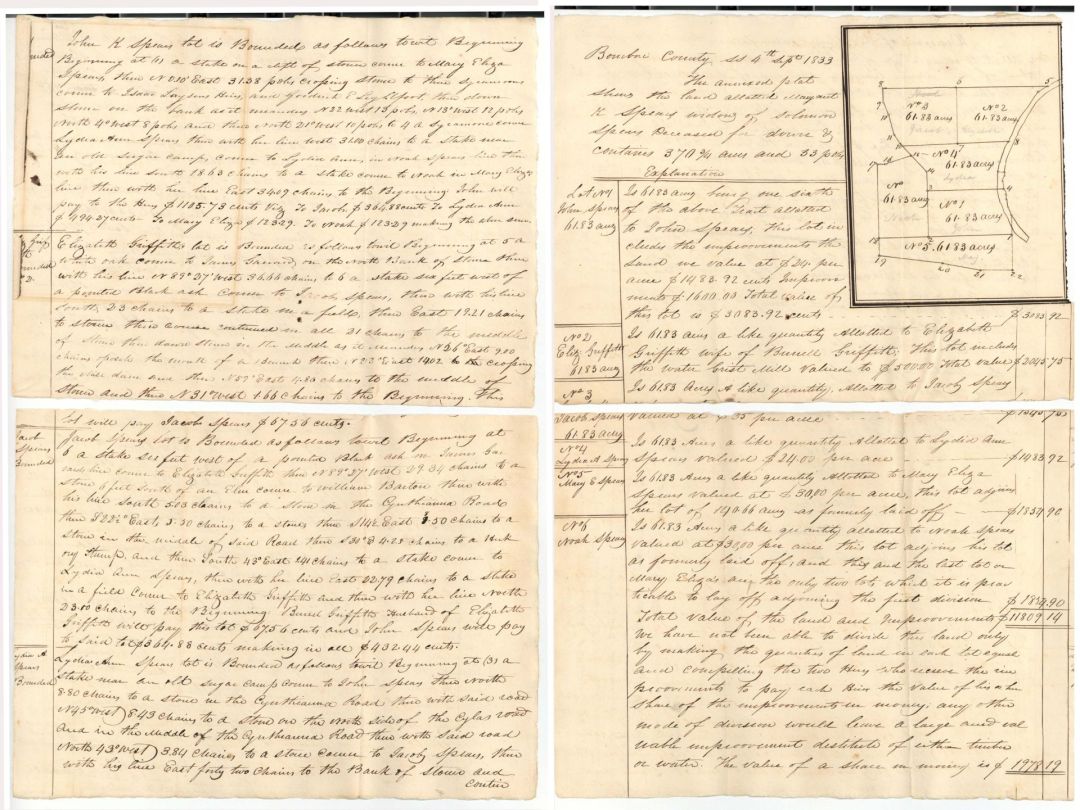 John K Spears lot is Bounded as follows towit Beginning
Beginning at (1) a stake on a clift of stoner corner to Mary Eliza
Spears, then N 10° East 31.38 pols crossing stoner to three sycamores
corner to Isaac and down
stoner on the bank as it meanders N 22 west 13 pols, N 18° west 12 pols
North 4° west 8 pols and then North 21° west 10 pols to 4 a Sycamore corner
Lydia Ann Spears then with her line West 32.00 chains to a stake near
an old sugar camp, corner to Lydia Ann, in Noah Spears line then
with his line south 18.63 chains to a stake corner to Noah in Mary Eliza's
line then with her line East 34.09 chains to the Beginning John will
pay to the Heirs $1105.73 cents Viz. To Jacob $364.88 cents To Lydia Ann
$494.27 cents To Mary Eliza $123.29. To Noah $123.29 making the above sum.
Elizabeth Griffiths lot is Bounded as follows towit Beginning at 5 a
white oak corner to James Garrard, on the North Bank of Stoner then
with his line N 89° 27' West 36.66 chains to 6 a stake six feet west of
a pointed Black ash Corner to Jacob Spears, then with his line
South, 23 chains to a stake in a field, then East 19.21 chains
to stoner this course continued in all 21 chains to the middle
of Stoner then down stoner in the middle as it meanders N 26° East 9.00
chains the mouth of a branch then N 23° East 14.02 crossing
the Mill dam and then N 59° East 4.80 chains to the middle of
Stoner and then N 31° West 1.66 chains to the Beginning. This
lot will pay Jacob Spears $67.56 cents.
Jacob
Spears
Bounded
Jacob Spears lot is Bounded as follows towit Beginning at
6 a Stake six feet west of a pointed Black ash in James Gar
rards line corner to Elizabeth Griffith then N 89° 27' West 29.34 chains to a
stone 6 feet South of an Elm corner to William Barton then with
his line South 5.03 chains to a Stone in the Cynthianna Road
then S 22½° East, 5.50 chains to a stone, then S 14½ East 5.50 chains to a
stone in the middle of said Road then S 30° E 4.28 chains to a Hick
ory Stump, and then South 43° East 1.41 chains to a stake corner to
Lydia Ann Spears, then with her line East 22.79 chains to a Stake
in a field Corner to Elizabeth Griffith and then with her line North
23.00 chains to the Beginning Burrel Griffith Husband of Elizabeth
Griffith will pay this lot $67.56 cents and John Spears will pay
to said lot $364.88 cents making in all $432.44 cents.
Lydia A
Spears
Bounded
Lydia Ann Spears lot is Bounded as follows towit Beginning at (3) a
Stake near an old sugar camp corner to John Spears then North
8.80 chains to a stone in the Cynthianna Road then with said road
N 45° West) 8.43 chains to a stone on the North side of the road
and in the Middle of the Cynthianna Road then with said road
North 43° West) 3.84 Chains to a stone corner to Jacob Spears, then
with his line East forty two Chains to the Bank of Stoner and
contin
Bourbon County Sct 4th Septr 1833
The annexed plat
shews the land allotted Margaret
K Spears widow of Solomon
Spears Deceased for dower &
contains 370¾ acres and 33 pols
Explanation
8 6 5
No 3
61.83 acres
Jacob
No 2
61.83 acres
No 4
61.83 acres
Lydia
No
61.83 acres
Noah
No 1
61.83 acres
John
No 5. 61.83 acres
Lot No 1
John Spears
61.83 acres
Is 61.83 acres being one sixth
of the above Tract allotted
to John Spears, this lot in
cludes the improvements the
Land we value at $24 per
acre $1483.92 cents Improve
ments $1600.00 Total Value of
this lot is $3083.92 cents $3083.92
No 2
Eliz. Griffith
61.83 acres
Is 61.83 acres a like quantity Allotted to Elizabeth
Griffith wife of Burrell Griffith This lot includes
the water Grist Mill Valued to $500.00 Total value $2045.75
No 3
Is 61.83 Acres A like quantity, Allotted to Jacob Spears
Jacob Spears
61.83 acres
valued at $25 per acre $1545.75
No 4
Lydia A Spears
Is 61.83 Acres a like quantity Allotted to Lydia Ann
Spears valued $24.00 per acre $1483.92
No 5
Mary E Spears
Is 61.83 Acres a like quantity Allotted to Mary Eliza
Spears valued at $30,00 per acre, this lot adjoins
her lot of 120.66 acres as formerly laid off $1854.90
No 6
Noah Spears
Is 61.83 Acres a like quantity allotted to Noah Spears
valued at $30,00 per acre this lot adjoins his lot
as formerly laid off; and this and the last lot or
Mary Eliza's are the only two lots which it is prac
ticable to lay off, adjoining the first division $1854.90
Total value of the land and Improvements $11809.14
We have not been able to divide this land only
by making the quantities of land in each lot equal
and compelling the two Heirs who receive the im
provements to pay each Heir the value of his or her
share of the improvements in money; any other
mode of division would leave a large and val
uable improvement destitute of either timber
or water. The value of a share in money is $ 1978.19